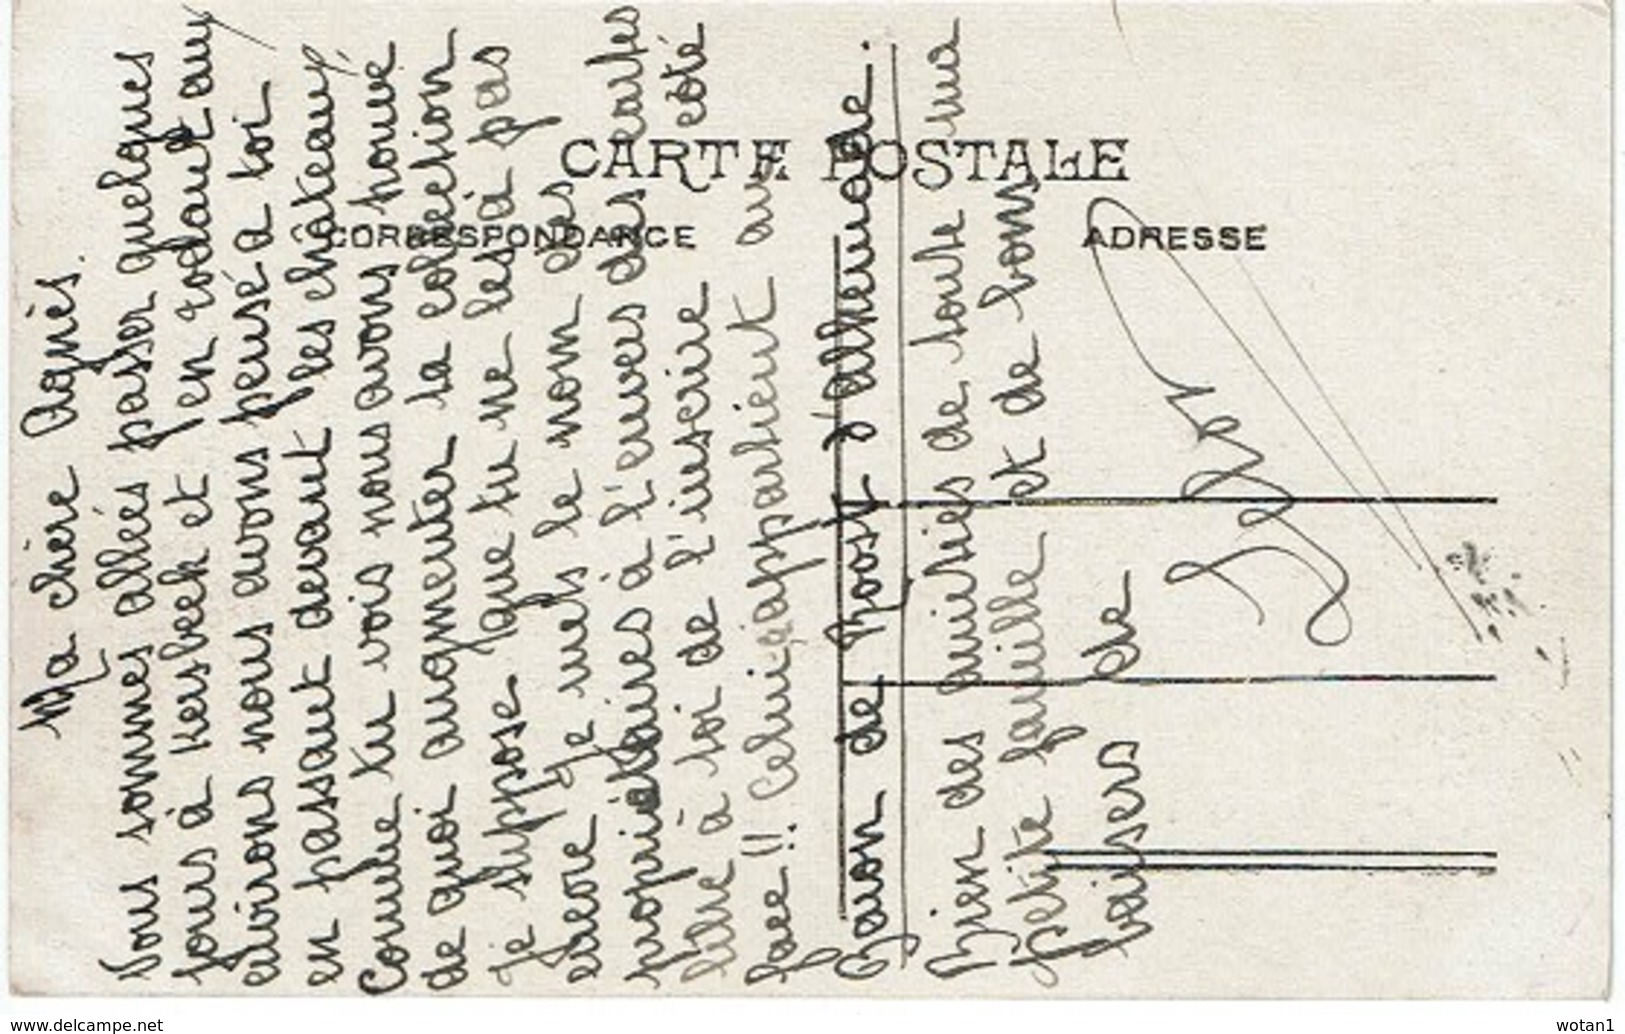 CARTE POSTALE
CORRESPONDANCE
ADRESSE
Ma chère Agnès.
Nous sommes allées passer quelques
jours à Kersbeek et en rodant aux
environs nous avons pensé à toi
en passant devant les chateaux
Comme tu vois nous avons trouvé
de quoi augmenter ta colection
Je suppose que tu ne les à pas
encore Je mets le nom des
propriétaires à l'envers des cartes
libre à toi de l'inscrire coté
face!! Celui çi appartient au
Baron de Roost d'Alkemade.
Bien des amitiés de toute ma
petite famille et de bons
baisers de
www.delcampe.net
wotan1